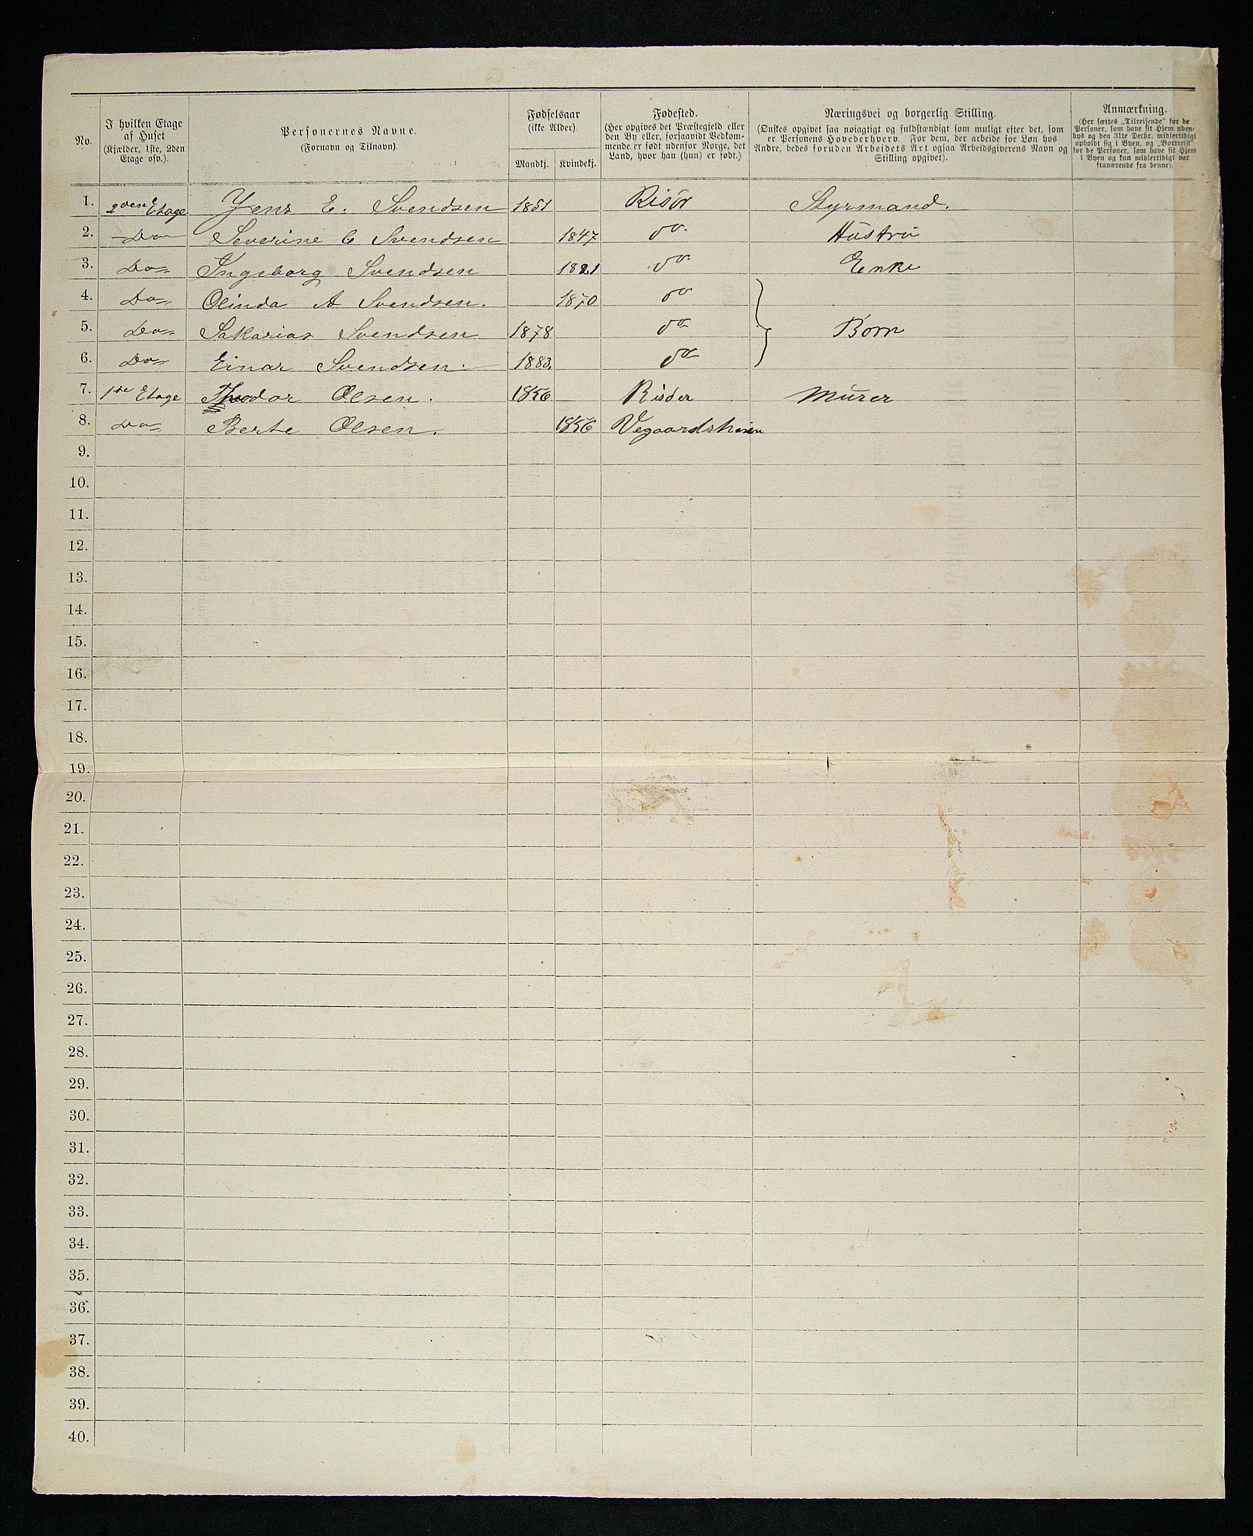 No.
I hvilken Etage
af Huset
(Kjælder, 1ste, 2den
Etage osv.)
Personernes Navne.
(Fornavn og Tilnavn)
Fødselsaar
(ikke Alder)
Mandkj. Kvindekj.
Fødested.
(Her opgives det Præstegjeld eller
den By eller, forsaavidt Vedkom-
mende er født udenfor Norge, det
Land, hvor han (hun) er født.)
Næringsvei og borgerlig Stilling.
(Ønskes opgivet saa nøiagtigt og fuldstændigt som muligt efter det, som
er Personens Hovederhverv. For dem, der arbeide for Løn hos
Andre, bedes foruden Arbeidets Art ogsaa Arbeidsgiverens Navn og
Stilling opgivet).
Anmærkning.
(Her sættes „Tilreisende“ for de
Personer, som have sit Hjem uden-
bys og den 31te Decbr. midlertidigt
opholdt sig i Byen, og „Bortreist“
for de Personer, som have sit Hjem
i Byen og kun midlertidigt var
fraværende fra denne).
1. 2den Etage Jens E. Svendsen 1851 Risør Styrmand.
2. Do Severine C Svendsen 1847 do Hustru
3. Do Ingeborg Svendsen 1821 do Enke
4. Do Olinda A Svendsen. 1870 do
5. Do Sakarias Svendsen 1878 do Børn
6. Do Einar Svendsen. 1883. do
7. 1ste Etage Theodor Olsen. 1856 Risøer Murer
8. Do Berte Olsen. 1856 Vegaardsheien
9.
10.
11.
12.
13.
14.
15.
16.
17.
18.
19.
20.
21.
22.
23.
24.
25.
26.
27.
28.
29.
30.
31.
32.
33.
34.
35.
36.
37.
38.
39.
40.